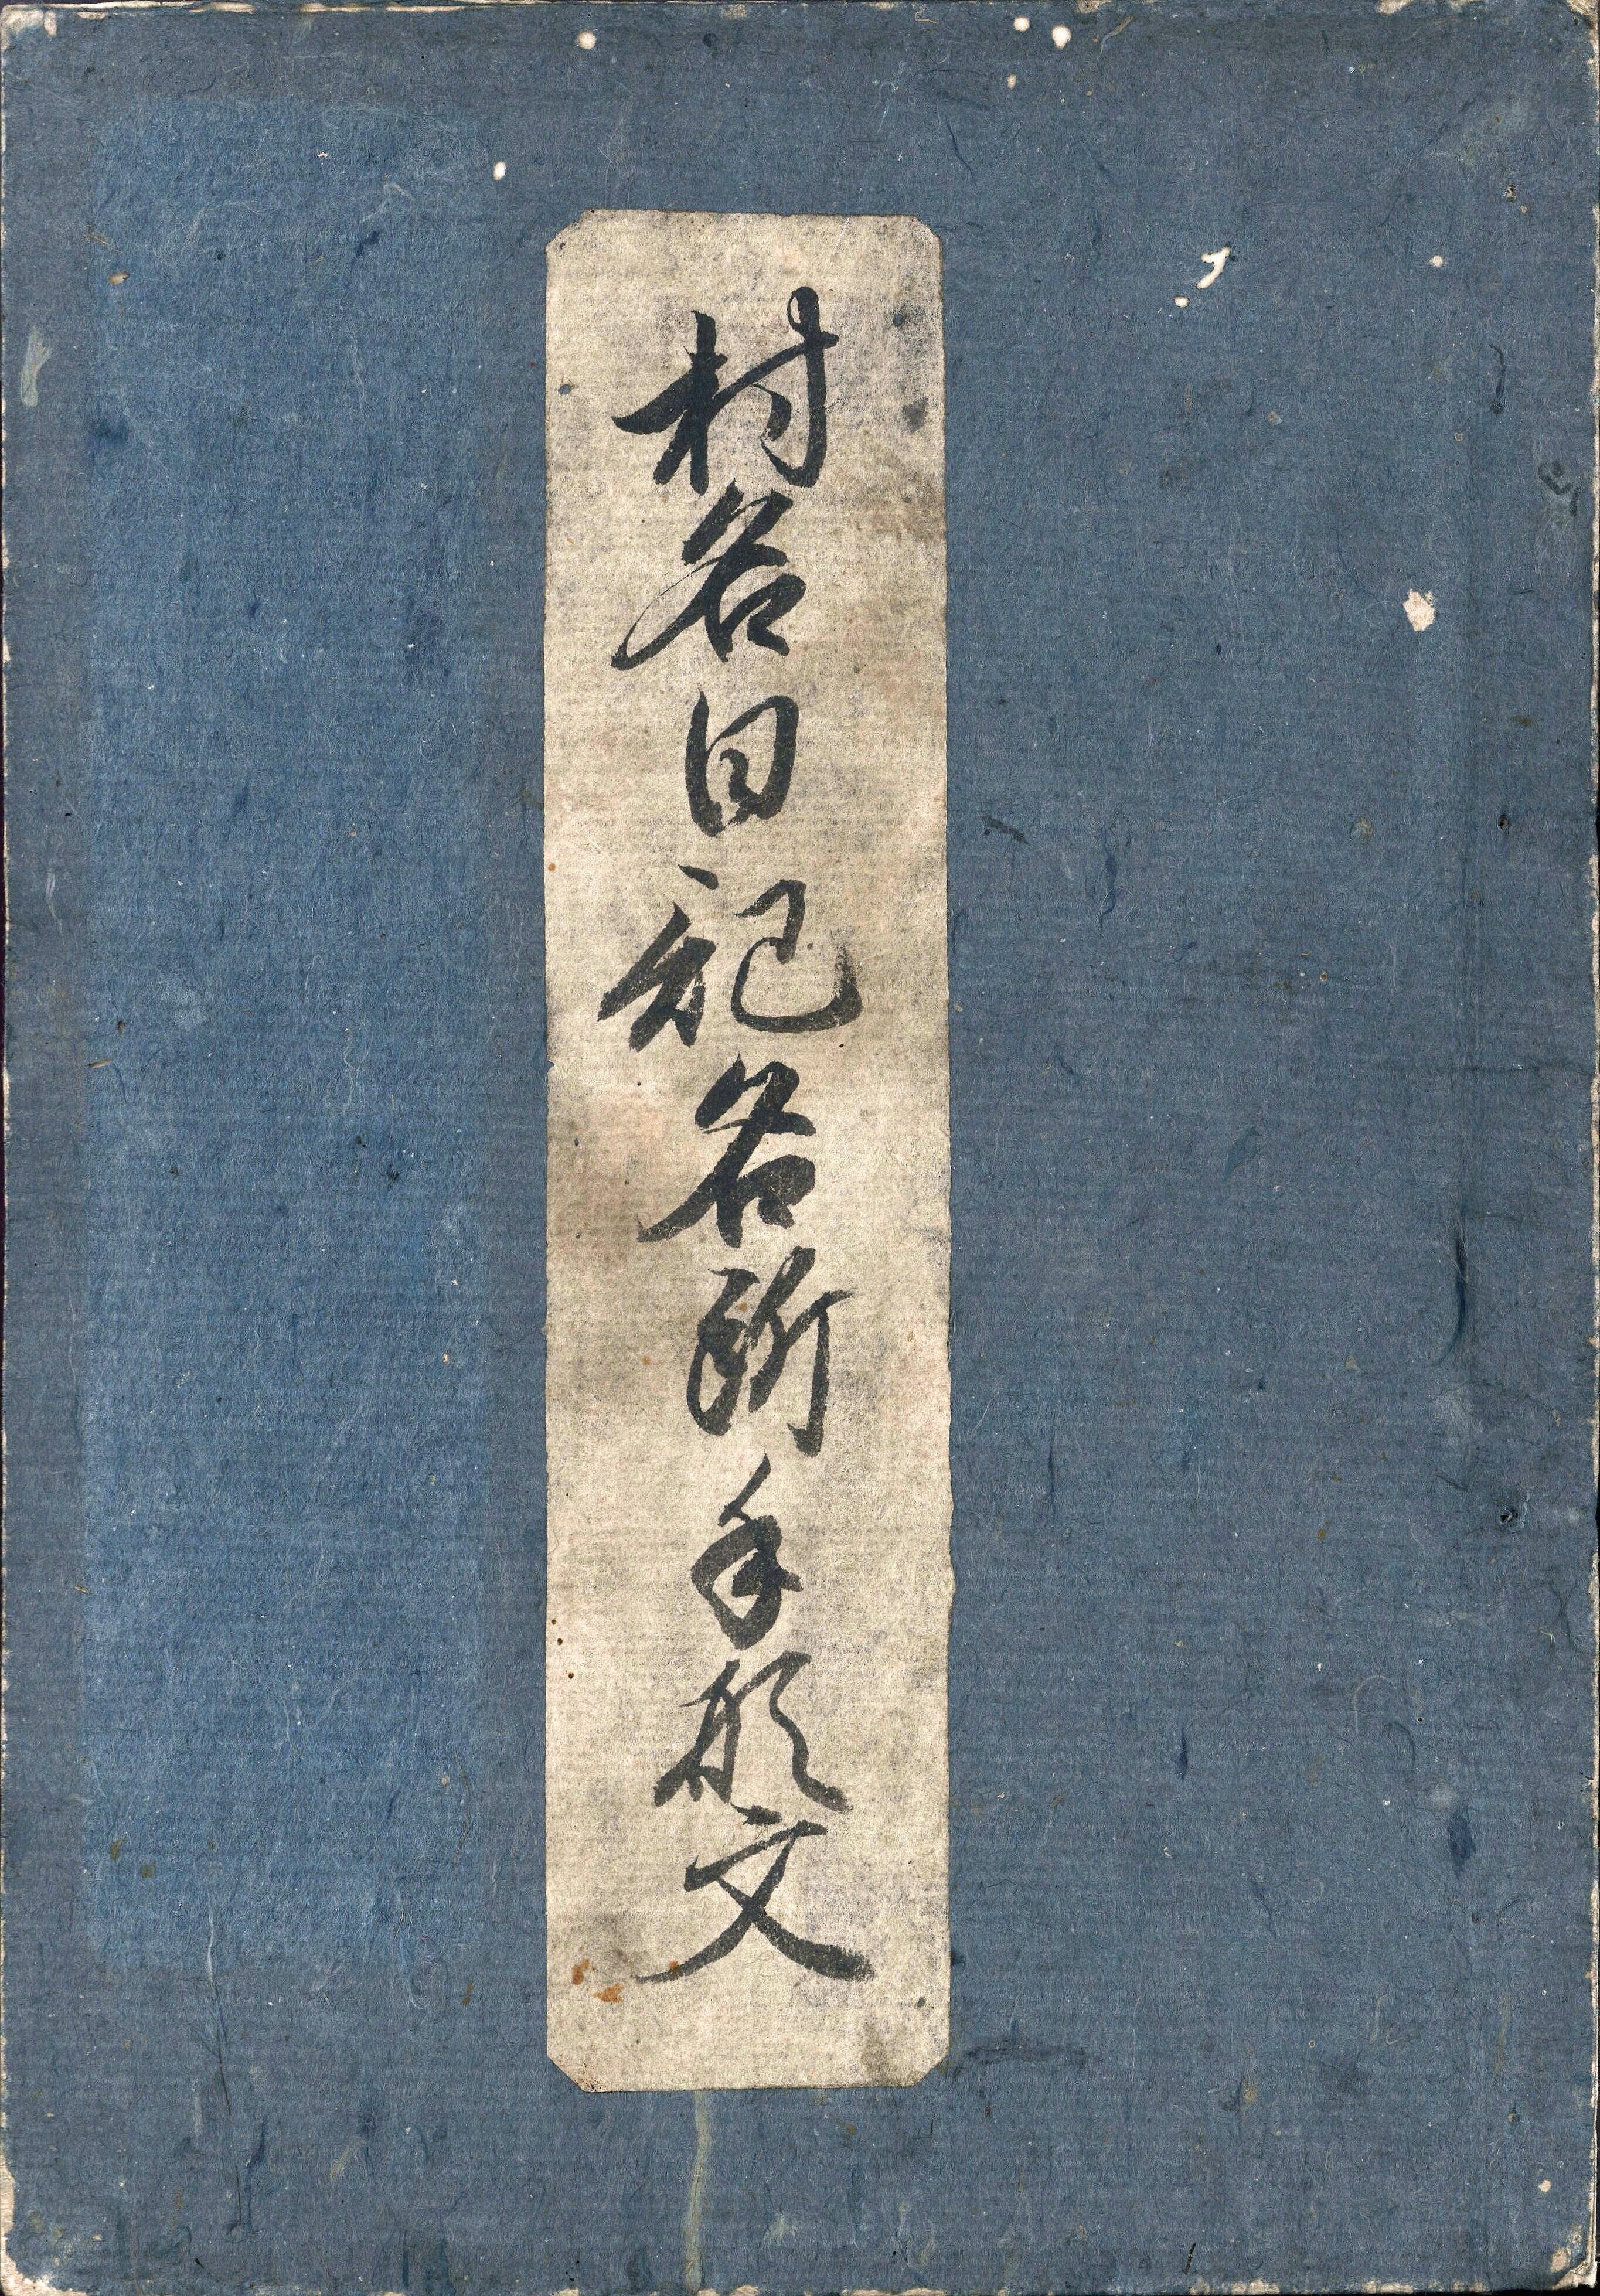 村名日記名所手形文